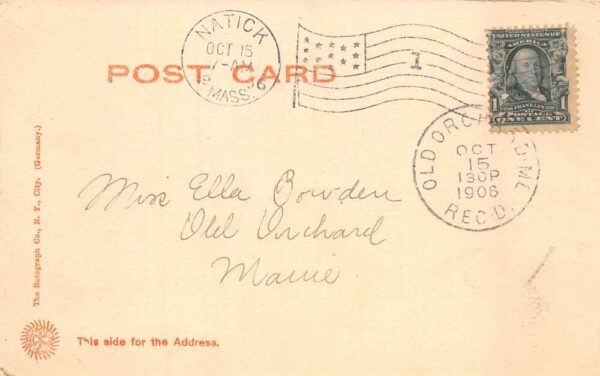 NATICK
OCT 15
7-AM
19 06
MASS.
1
UNITED STATES OF
AMERICA
FRANKLIN
1 1
POSTAGE
ONE CENT
POST CARD
OLD ORCHARD ME
OCT
15
130P
1906
REC'D.
Miss Ella Bowden
Old Orchard
Maine
The Rotograph Co., N. Y., City. (Germany.)
This side for the Address.